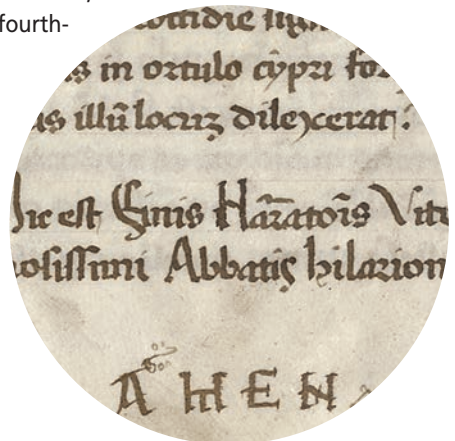 fourth-
ottidie sig
s in ortulo cypri fo
us illū locuz dilexerat:
ic est Finis Nar̄atoīs Vite
osissimi Abbatis hilarion
A M E N